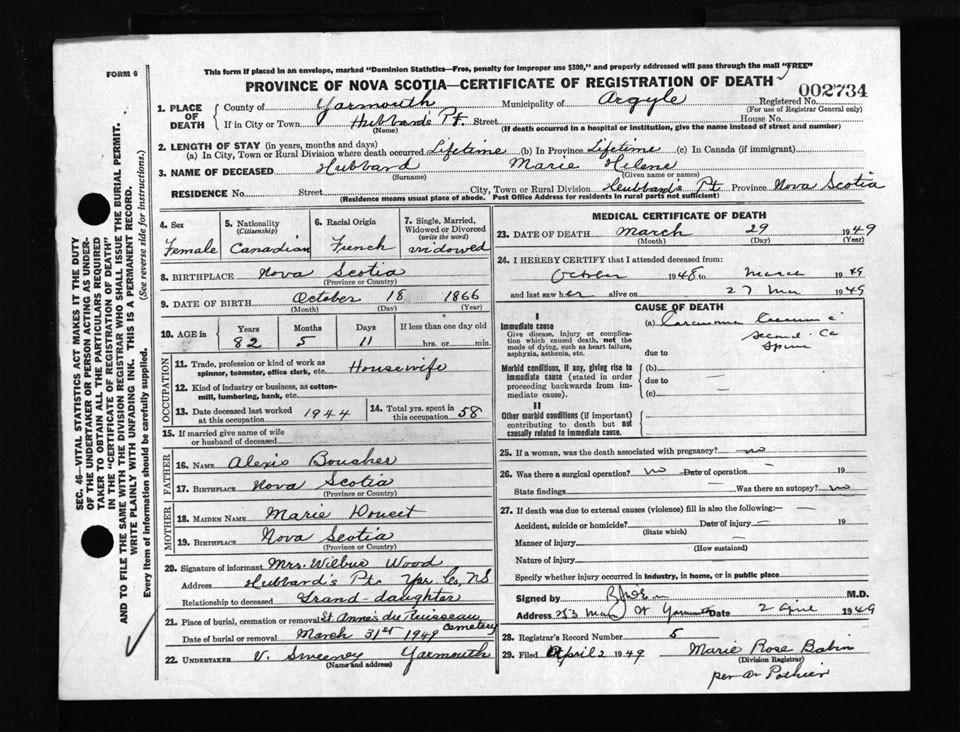 This form if placed in an envelope, marked "Dominion Statistics—Free, penalty for improper use $300," and properly addressed will pass through the mail "FREE"
FORM 6
PROVINCE OF NOVA SCOTIA—CERTIFICATE OF REGISTRATION OF DEATH
002734
1. PLACE OF DEATH
County of Yarmouth Municipality of Argyle Registered No.
(For use of Registrar General only)
If in City or Town Hubbard's Pt. Street House No.
(Name) (If death occurred in a hospital or institution, give the name instead of street and number)
2. LENGTH OF STAY (in years, months and days)
(a) In City, Town or Rural Division where death occurred Lifetime (b) In Province Lifetime (c) In Canada (if immigrant)
3. NAME OF DECEASED Hubbard Marie Helene
(Surname) (Given name or names)
RESIDENCE No. Street City, Town or Rural Division Hubbard's Pt Province Nova Scotia
(Residence means usual place of abode. Post Office Address for residents in rural parts not sufficient)
SEC. 46—VITAL STATISTICS ACT MAKES IT THE DUTY
OF THE UNDERTAKER OR PERSON ACTING AS UNDER-
TAKER TO OBTAIN ALL THE PARTICULARS REQUIRED
IN THE "CERTIFICATE OF REGISTRATION OF DEATH"
AND TO FILE THE SAME WITH THE DIVISION REGISTRAR WHO SHALL ISSUE THE BURIAL PERMIT.
WRITE PLAINLY WITH UNFADING INK. THIS IS A PERMANENT RECORD.
Every item of information should be carefully supplied. (See reverse side for instructions.)
4. Sex
Female
5. Nationality
(Citizenship)
Canadian
6. Racial Origin
French
7. Single, Married,
Widowed or Divorced
(write the word)
widowed
8. BIRTHPLACE Nova Scotia
(Province or Country)
9. DATE OF BIRTH October 18 1866
(Month) (Day) (Year)
10. AGE
Years Months Days If less than one day old
82 5 11 hrs. or min.
OCCUPATION
11. Trade, profession or kind of work as
spinner, teamster, office clerk, etc. Housewife
12. Kind of industry or business, as cotton-
mill, lumbering, bank, etc.
13. Date deceased last worked
at this occupation 1944
14. Total yrs. spent in
this occupation 58
15. If married give name of wife
or husband of deceased
FATHER
16. NAME Alexis Bousher
17. BIRTHPLACE Nova Scotia
(Province or Country)
MOTHER
18. MAIDEN NAME Marie Doucet
19. BIRTHPLACE Nova Scotia
(Province or Country)
20. Signature of informant Mrs. Wilbur Wood
Address Hubbard's Pt. Yar. Co, NS
Relationship to deceased Grand-daughter
21. Place of burial, cremation or removal St Anne's du Ruisseau
Cemetery
Date of burial or removal March 31st 1949
22. UNDERTAKER V. Sweeney Yarmouth
(Name and address)
MEDICAL CERTIFICATE OF DEATH
23. DATE OF DEATH March 29 1949
(Month) (Day) (Year)
24. I HEREBY CERTIFY that I attended deceased from:
1948 to 1949
and last saw her alive on 27 Mar 1949
CAUSE OF DEATH
I
Immediate cause
Give disease, injury or complica-
tion which caused death, not the
mode of dying, such as heart failure,
asphyxia, asthenia, etc.
(a) Carcinoma
due to
Morbid conditions, if any, giving rise to
immediate cause (stated in order
proceeding backwards from im-
mediate cause).
(b) —
due to —
(c) —
II
Other morbid conditions (if important)
contributing to death but not
causally related to immediate cause.
25. If a woman, was the death associated with pregnancy? no
26. Was there a surgical operation? no Date of operation — 19
State findings Was there an autopsy? no
27. If death was due to external causes (violence) fill in also the following:—
Accident, suicide or homicide? Date of injury 19
(State which)
Manner of injury
(How sustained)
Nature of injury
Specify whether injury occurred in industry, in home, or in public place
Signed by M.D.
Address 253 Main St Yarmouth Date 2 April 1949
28. Registrar's Record Number 5
29. Filed April 2 1949 Marie Rose Babin
(Division Registrar)
per Pothier